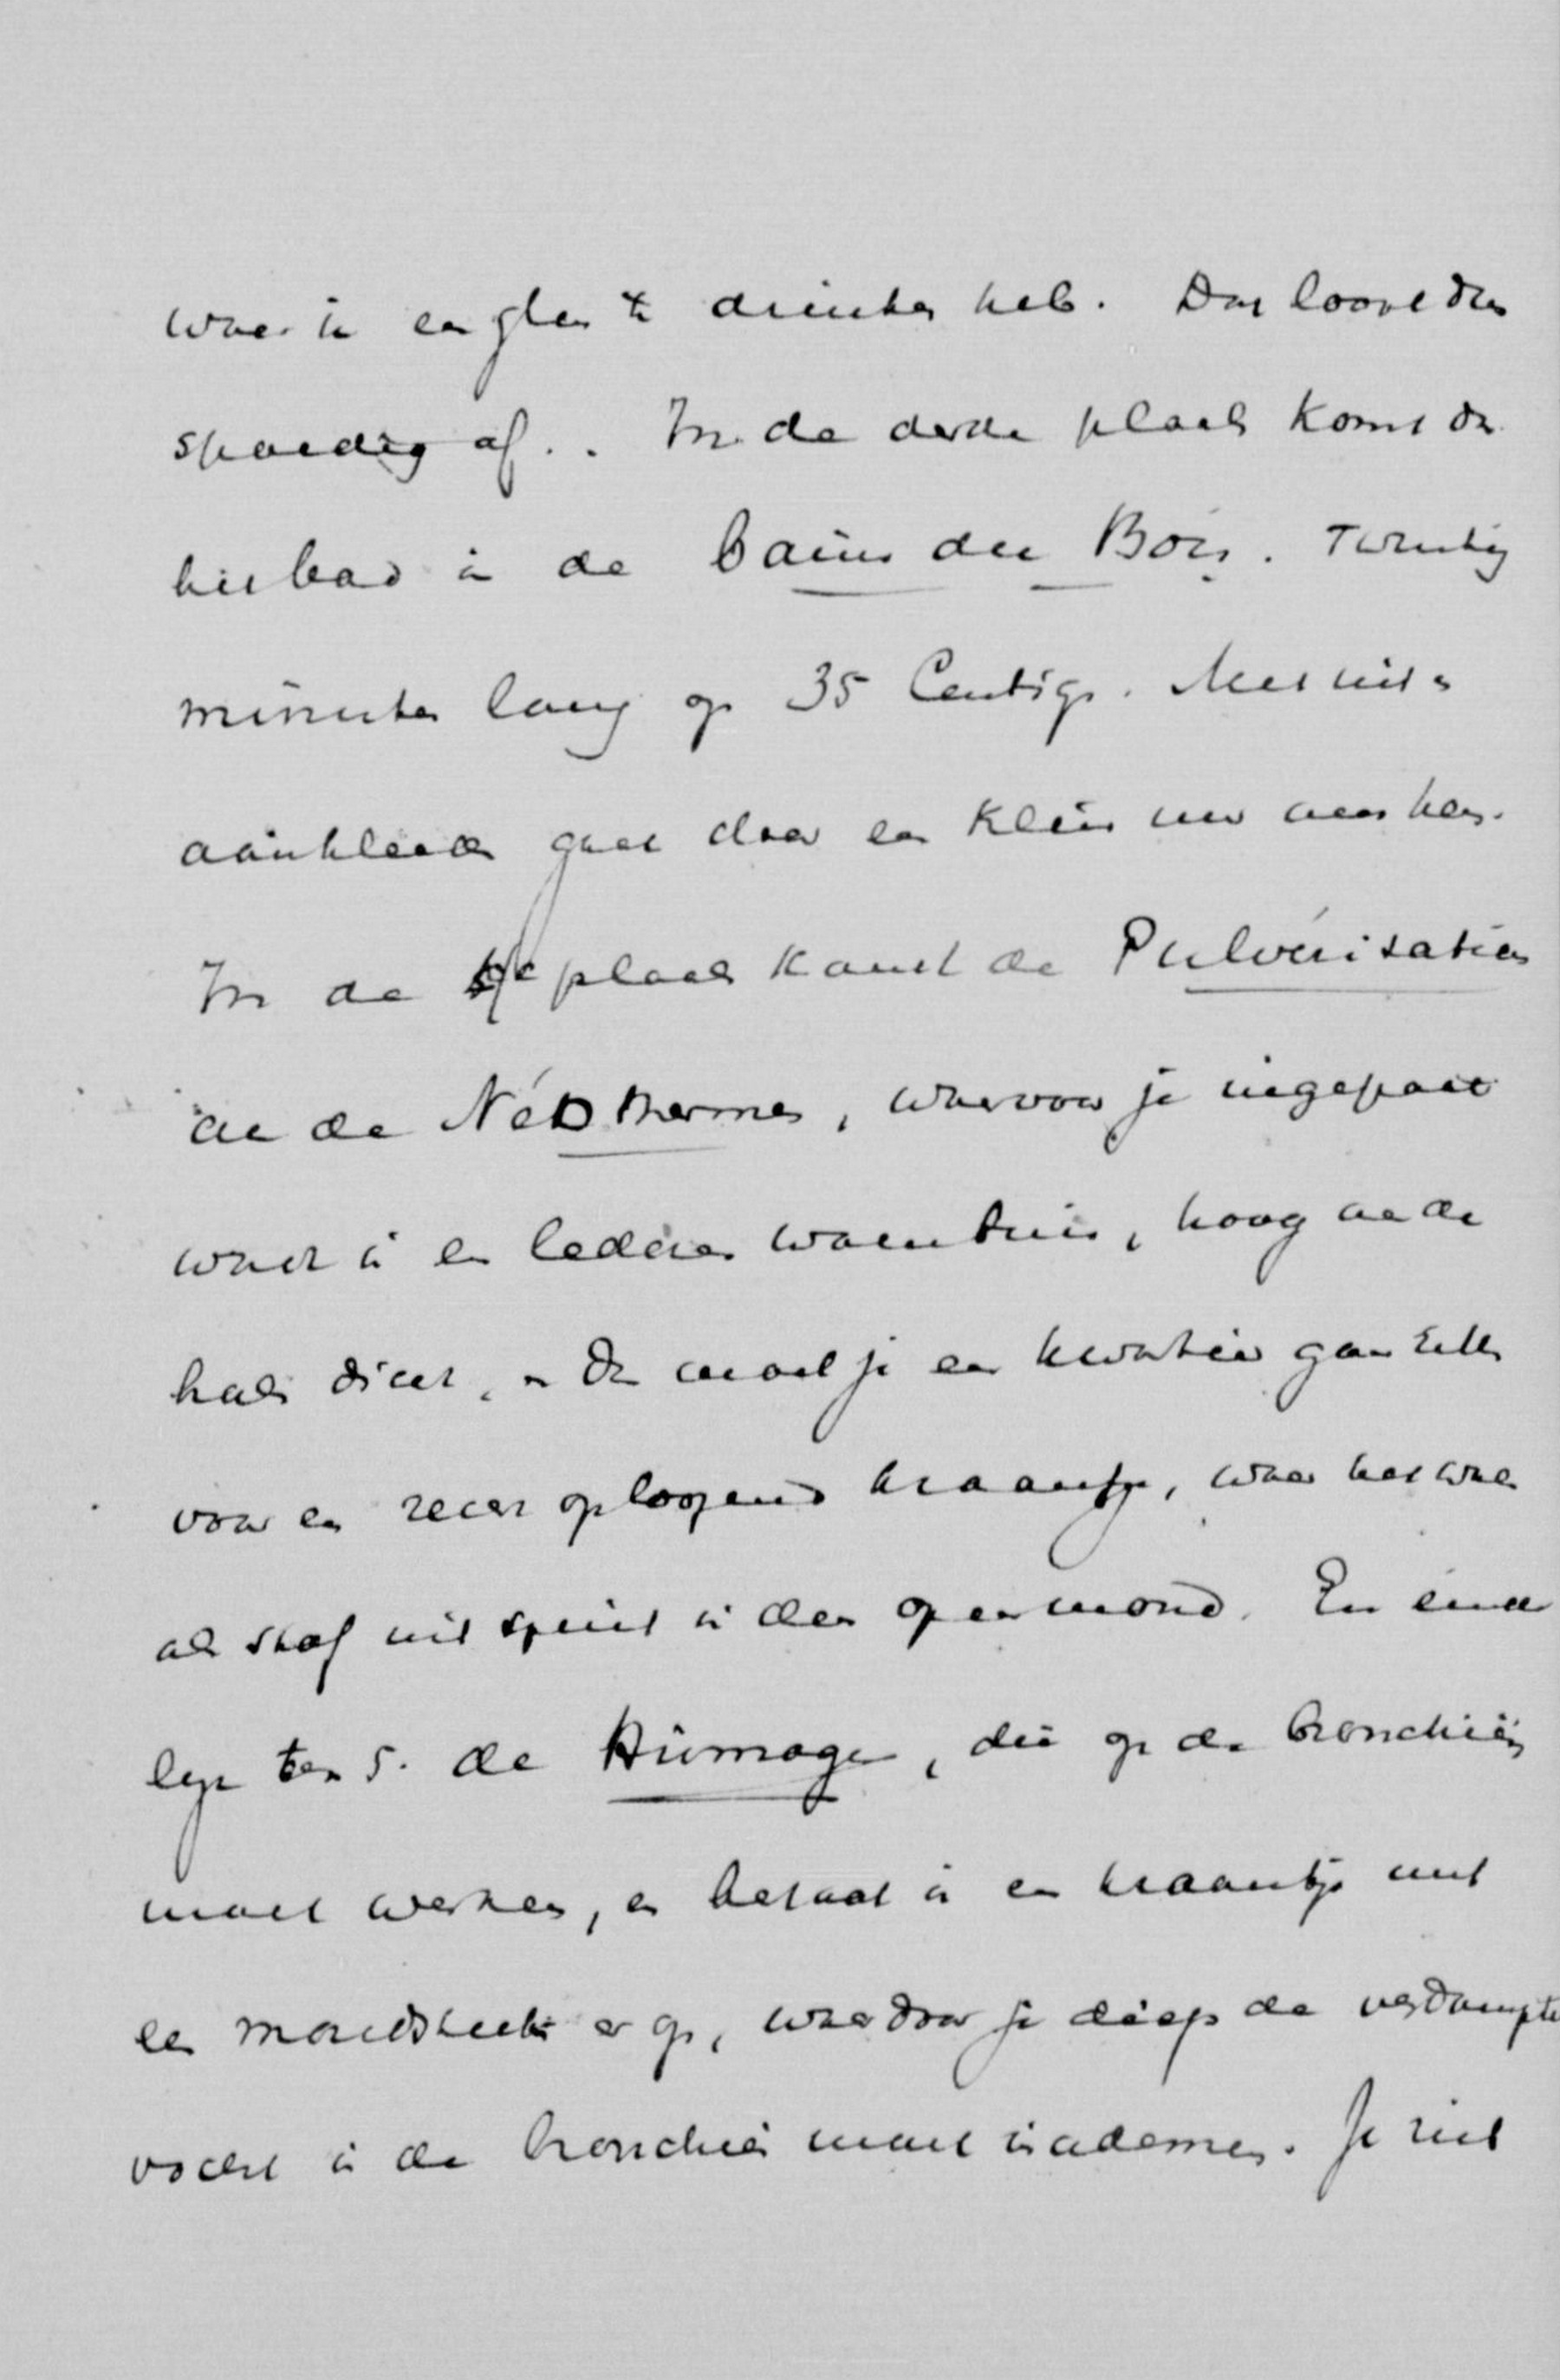 waar ik een glas te drinken heb. Dat loopt dus
spoedig af.. In de derde plaats komt dan
het bad in de bains du Bois. Twintig
minuten lang op 35 Centigr. Met uit en
aankleeden gaat daar een klein uur aan heen.
In de 4e plaats komt de Pulvérisation
in de Néothermes, waarvoor je ingepakt
wordt in een lederen, hoog aan de
hals dicht, en dan moet je een kwartier gaan zitten
voor een recht oploopend kraantje, waar het water
als stof uit spuit in den open mond. En einde
lijk ten 5. de Humage, die op de bronchiën
moet werken, en bestaat in een kraantje met
een mondstuk er op, waardoor je diep de verdampte
vocht in de bronchiën moet inademen. Je ziet